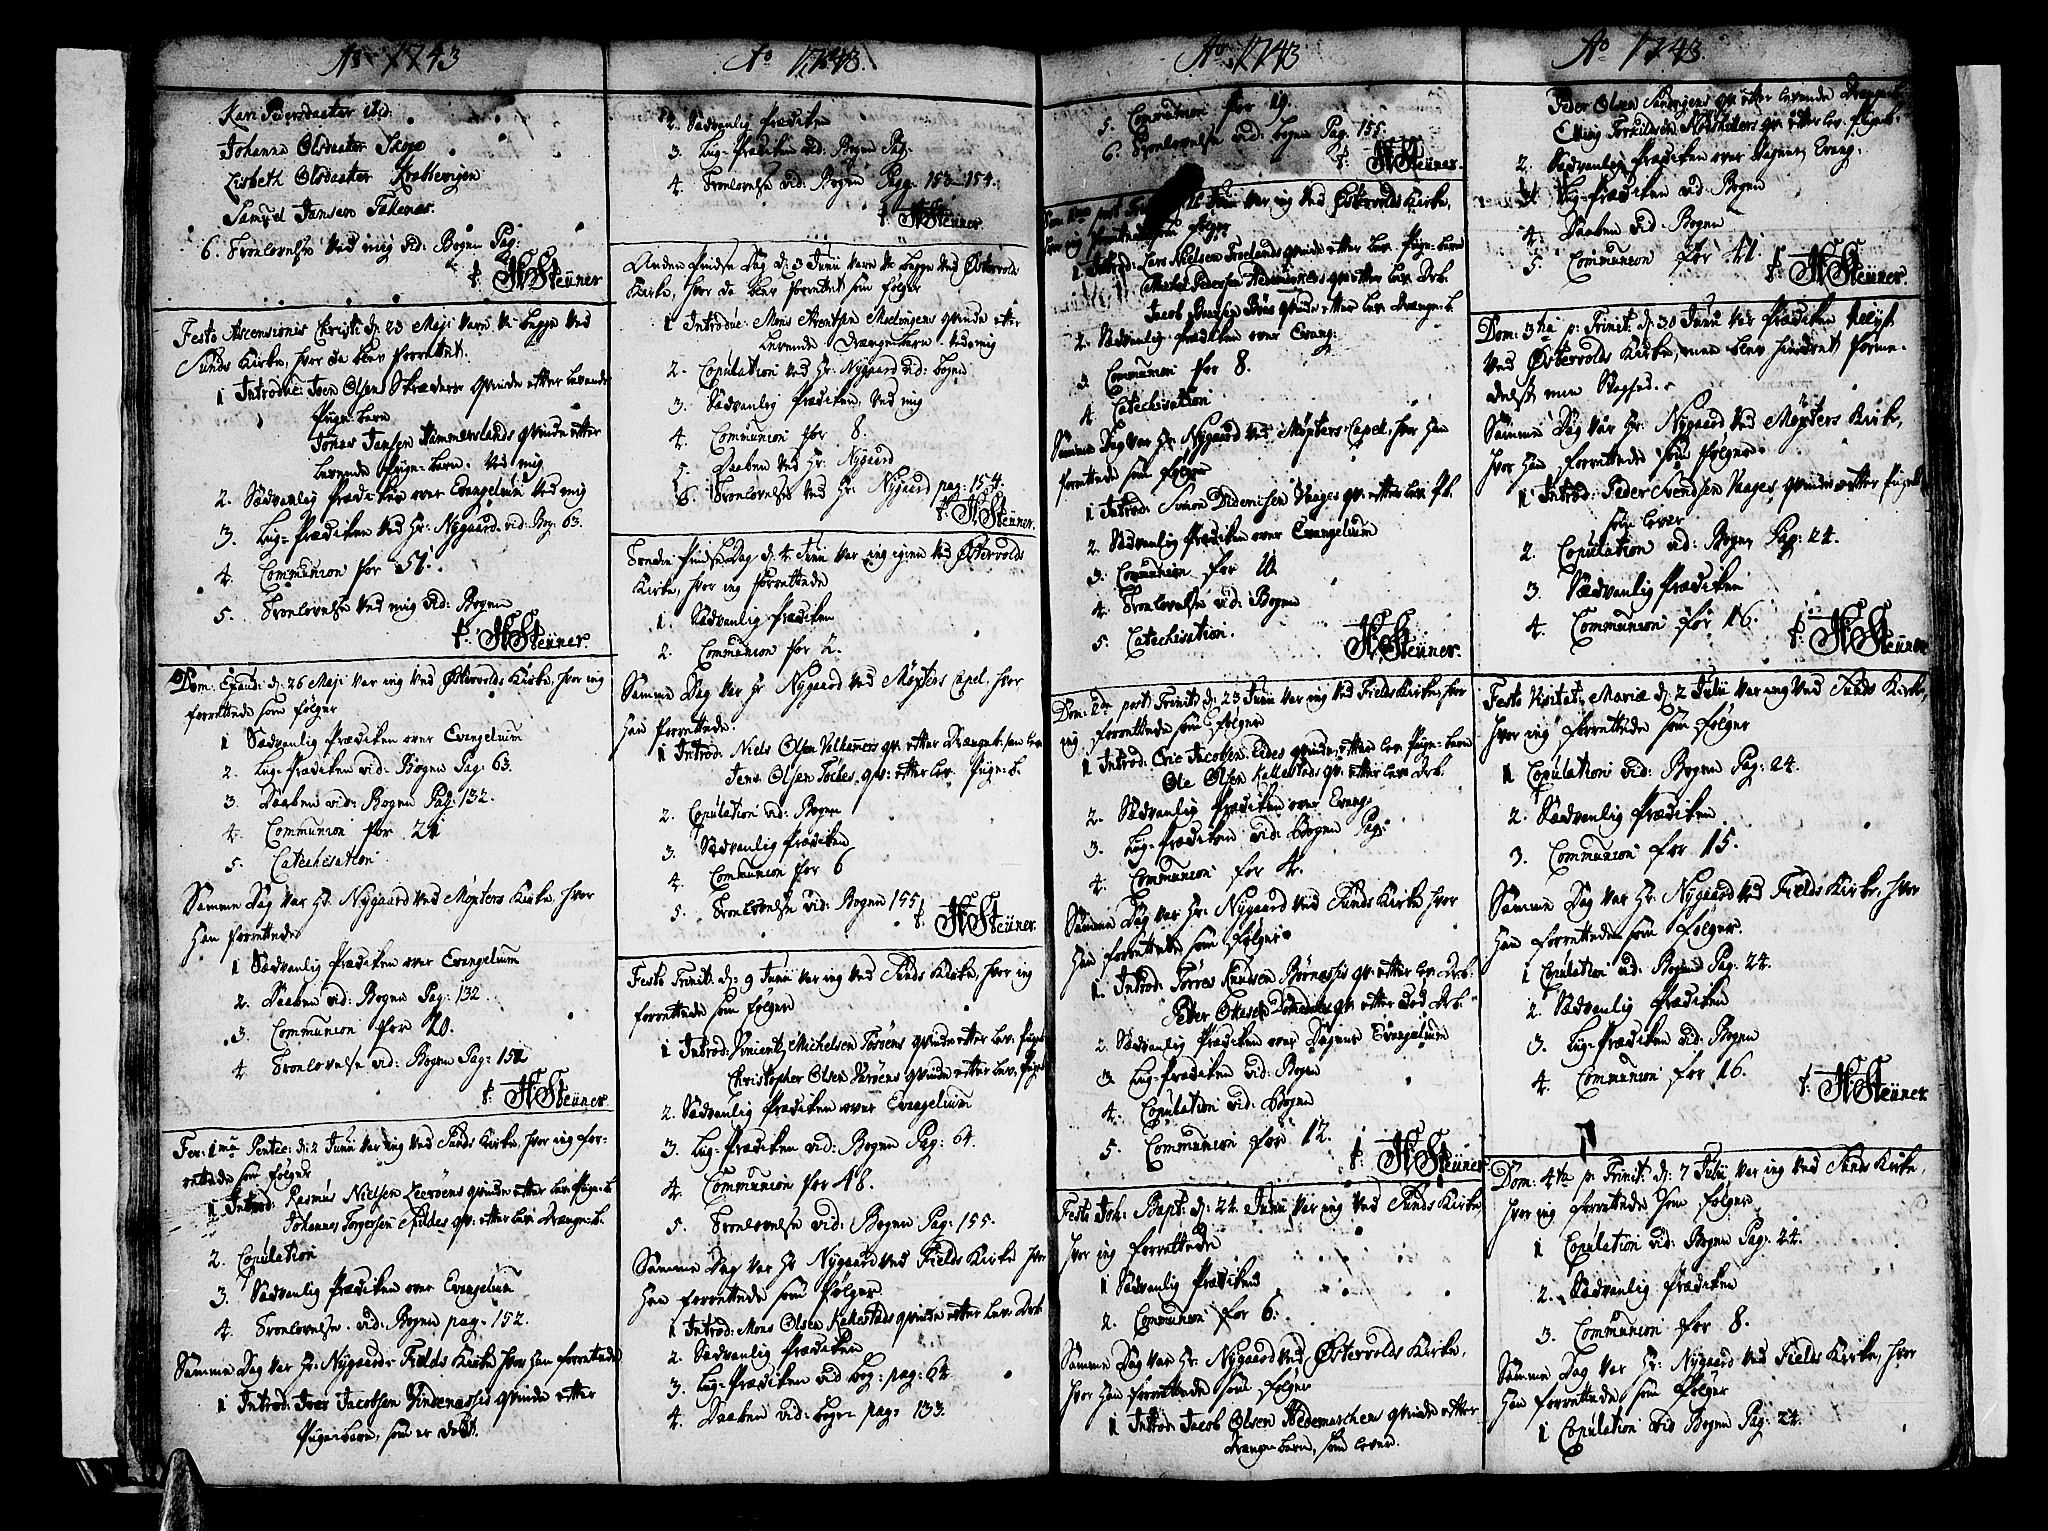 Ao 1743
Kari Pedersdaatter ibid:
Johanna Olsdaatter Skoge
Lisbeth Olsdaatter Krabbevigen
Samuel Jansen Tellenæs.
6. Trolovelse ved mig vid: Bogen Pag:
t. H Steüner
Festo Ascensionis Christi d: 23 Maji vare vi begge ved
Sunds Kirke, hvor da blev forrettet.
1 Introduc: Iven Olsen Skræders qvinde etter levende
Pige-barn
Jonas Jansen Hammerslands qvinde etter
levende Pige-barn. ved mig
2. Sædvanlig Prædiken over Evangelium ved mig
3. Lig-Prædiken ved Hr: Nygaard. vid: Bog: 63.
4. Communion for 57.
5. Trolovelse ved mig vid: Bogen
t. H Steüner.
Dom: Exaud: d: 26 Maji var ieg ved Østervolds Kirke, hvor ieg
forrettede som følger
1 Sædvanlig Prædiken over Evangelium
2. Lig-Prædiken vid: Bogen Pag: 63.
3. Daaben vid: Bogen Pag: 132.
4. Communion for 21
5. Catechisation
Samme Dag var Hr. Nygaard ved Møgsters Kirke, hvor
Han forrettede
1 Sædvanlig Prædiken over Evangelium
2. Daaben vid: Bogen Pag: 132
3. Communion for 20.
4. Trolovelse vid: Bogen Pag: 152
t. H Steüner
Fer: 1ma Pentec: d: 2 Junii var ieg ved Sunds Kirke, hvor ieg for-
rettede som følger
1 Introd: Rasmus Nielsen Leerøens qvinde etter lev. Pige-b.
Johannes Torgersen Spildes qv: etter lev: Drænge-b.
2. Copulation
3. Sædvanlig Prædiken over Evangelium
4. Trolovelse. vid: Bogen pag: 152.
Samme Dag var Hr: Nygaard v. Fields Kirke hvor han forrettede
1 Introd: Iver Jacobsen Vindenæssis qvinde etter
Pige-barn, som er død.
Ao 1743.
2. Sædvanlig Prædiken
3. Lig-Prædiken vid: Bogen Pag:
4. Trolovelse vid: Bogen Pag: 153-154.
t. H Steüner.
Anden Pindse Dag d: 3 Junii vare vi begge ved Østervolds
Kirke, hvor da blev forrettet som følger
1 Introduc: Mons Arentsen Melingens qvinde etter
levende Drængebarn ved mig
2. Copulation ved Hr: Nygaard vid: bogen
3. Sædvanlig Prædiken ved mig
4. Communion for 8.
5. Daaben ved Hr: Nygaard
6. Trolovelse ved Hr: Nygaard pag: 154.
t. H Steüner.
Tredie Pindse Dag d: 4 Junii var ieg igien ved Østervolds
Kirke, hvor ieg forrettede
1. Sædvanlig Prædiken
2. Communion for 2.
Samme Dag var Hr Nygaard ved Møgsters Capel, hvor
Han forrettede.
1 Introd: Niels Olsen qv. etter Drængeb: som lever
Jens Olsen qv: etter lev. Pige-b.
2. Copulation vid: Bogen
3. Sædvanlig Prædiken
4. Communion for 6
5. Trolovelse vid: Bogen 155.
t. H Steüner.
Festo Trinit. d: 9 Junii var ieg ved Sunds Kirke, hvor ieg
forrettede som følger
1 Introd: Vincentz Michelsen Toröens qvinde etter lev. Pigeb
Christopher Olsen qvinde etter lev. Pigeb
2. Sædvanlig Prædiken over Evangelium
3. Lig-Prædiken vid: Bogen Pag: 64.
4. Communion for 48.
5. Trolovelse vid: Bogen Pag: 155.
Samme Dag var Hr Nygaard ved Fields Kirke hvor
Han forrettede som følger
1 Introd: Mons Olsen Kallestads qvinde etter lev. Drb
2. Sædvanlig Prædiken
3. Lig-Prædiken vid bog: pag: 64.
4. Daaben vid: bogen pag: 133.
Ao 1743
5. Communion for 19.
6. Trolovelse vid: bogen Pag: 155.
t. H Steüner.
Dom: 1ma post Trinit: d: 16 Junii var ieg ved Østervolds Kirke,
hvor ieg forrettede som følger
1 Introd: Lars Nielsen Troelands qvinde etter lev. Pige-barn
Michel Pedersen qv: etter lev. Drb.
Jacob qvinde etter lev. Drænge-b.
2. Sædvanlig Prædiken over Evang:
3 Communion for 8.
4. Catechisation
Samme Dag var Hr. Nygaard ved Møgsters Capel, hvor han
forrettede som følger
1 Introd: Simon Diderichsen Vaages qv. etter lev. Pb.
2. Sædvanlig Prædiken over Evangelium
3. Communion for 11
4. Trolovelse vid: Bogen
5. Catechisation.
H Steüner.
Dom: 2da post Trinit: d: 23 Junii var ieg ved Fields Kirke, hvor
ieg forrettede som følger
1 Introd: Eric Jacobsen Eides qvinde etter lev. Pige-barn
Ole Olsen Kallestads qv. etter lev. Drb.
2. Sædvanlig Prædiken over Evang:
3. Lig-Prædiken vid: Bogen Pag:
4. Communion for 4.
Samme Dag var Hr: Nygaard ved Sunds Kirke hvor
Han forrettede som følger
1. Introd: Torres Knudsen Børnæssis qv. etter lev. Drb.
Peder qv: etter død Drb.
2. Sædvanlig Prædiken over Dagens Evangelium
3 Lig-Prædiken vid: Bogen
4. Copulation vid: Bogen
5. Communion for 12.
t. H Steüner
Festo Joh: Bapt: d: 24. Junii var ieg ved Sunds Kirke
hvor ieg forrettede
1 Sædvanlig Prædiken
2. Communion for 6.
Samme Dag var Hr. Nygaard ved Østervolds Kirke,
hvor han forrettede som følger
1 Introd: Jacob Olsen Hedemarchens qvinde etter
Drænge barn, som lever.
Ao 1743.
Peder Olsen qv. etter levende Drængeb.
Elling Torkildsen qv. etter lev. Pige-b.
2. Sædvanlig Prædiken over Dagens Evang:
3 Lig-Prædiken vid: Bogen
4. Daaben vid: Bogen
5. Communion for 41.
t. H Steüner.
Dom: 3tia p: Trinit: d: 30 Junii var Prædiken
ved Østervolds Kirke, men blev hindret forme-
delst min
Samme Dag var Hr: Nygaard ved Møgsters Kirke,
hvor han forrettede som følger
1 Introd: Peder Svendsen Vaages qvinde etter Pigeb.
som lever
2. Copulation vid: Bogen Pag: 24.
3. Sædvanlig Prædiken
4. Communion for 16.
t. H Steüner
Festo Visitat: Mariæ d: 2 Julii var ieg ved Sunds Kirke,
hvor ieg forrettede som følger
1 Copulation vid: Bogen Pag: 24.
2. Sædvanlig Prædiken
3. Communion for 15.
Samme Dag var Hr: Nygaard ved Fields Kirke, hvor
Han forrettede som følger.
1 Copulation vid: Bogen Pag: 24.
2. Sædvanlig Prædiken
3. Lig-Prædiken vid: Bogen
4. Communion for 16.
t. H Steüner
Dom: 4ta p: Trinit: d: 7 Julii var ieg ved Sunds Kirke,
hvor ieg forrettede som følger
1 Copulation vid: Bogen Pag: 24.
2. Sædvanlig Prædiken
3. Communion for 8.
Samme Dag var Hr: Nygaard ved Fields Kirke, hvor
Han forrettede som følger
1 Copulation vid Bogen Pag: 24.